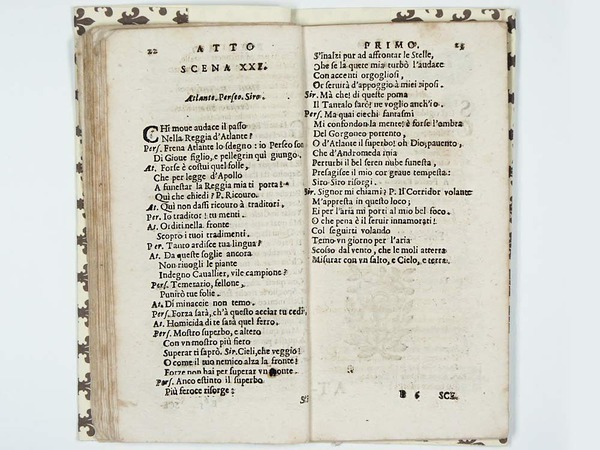 22 ATTO
SCENA XXI.
Atlante. Perseo. Siro.
CHi move audace il passo
Nella Reggia d'Atlante?
Pers. Frena Atlante lo sdegno: io Perseo son
Di Giove figlio, e pellegrin quì giungo.
At. Forse è costui quel folle,
Che per legge d'Apollo
A funestar la Reggia mia ti porta?
Quì che chiedi? P. Ricouro.
At. Quì non dassi ricouro à traditori,
Per. Io traditor! tu menti.
At. Orditi nella fronte
Scopro i tuoi tradimenti.
Per. Tanto ardisce tua lingua?
At. Da queste soglie ancora
Non riuogli le piante
Indegno Cauallier, vile campione?
Pers. Temerario, fellone,
Punirò tue folie.
At. Di minaccie non temo.
Pers. Forza sarà, ch'à questo acciar tu cedi,
At. Homicida di te sarà quel ferro,
Pers. Mostro superbo, e altero
Con vn mostro più fiero
Superar ti saprò. Sir. Cieli, che veggio!
O come il suo nemico alza la fronte!
Forze non hai per superar vn monte.
Pers. Anco estinto il superbo
Più feroce risorge:
PRIMO. 23
S'inalzi pur ad affrontar le Stelle,
Che se la quete mia turbò l'audace
Con accenti orgogliosi,
Or seruirà d'appoggio à miei riposi.
Sir. Mà che! di queste poma
Il Tantalo sarò: ne voglio anch'io.
Pers. Ma quai ciechi fantasmi
Mi confondon la mente: è forse l'ombra
Del Gorgoneo portento,
O d'Atlante il superbo; oh Dio, pauento,
Che d'Andromeda mia
Perturbi il bel seren nube funesta,
Presagisce il mio cor graue tempesta:
Siro Siro risorgi.
Sir. Signor mi chiami? P. Il Corridor volante
M'appresta in questo loco;
Ei per l'aria mi porti al mio bel foco.
O che pena è il seruir innamorati!
Col seguirti volando
Temo vn giorno per l'aria
Scosso dal vento, che le moli atterra
Misurar con vn salto, e Cielo, e terra.
B 6 SCE.